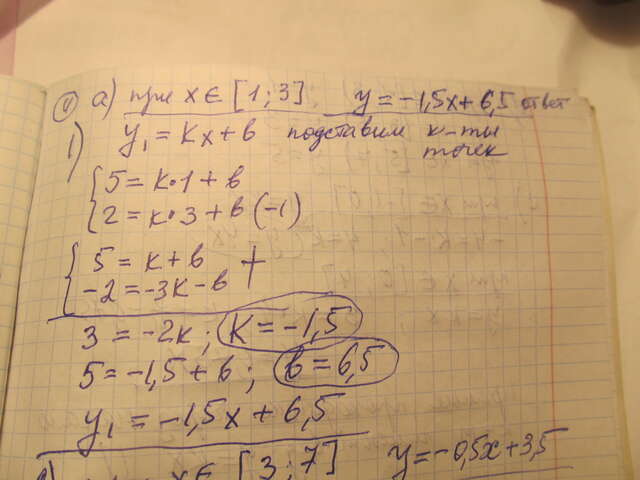 ④ а) при x ∈ [1; 3] y = -1,5x + 6,5 ответ
1) y₁ = kx + b подставим к-ты точек
5 = k·1 + b
2 = k·3 + b (-1)
5 = k + b +
-2 = -3k - b
3 = -2k; k = -1,5
5 = -1,5 + b; b = 6,5
y₁ = -1,5x + 6,5
x ∈ [3; 7] y = -0,5x + 3,5